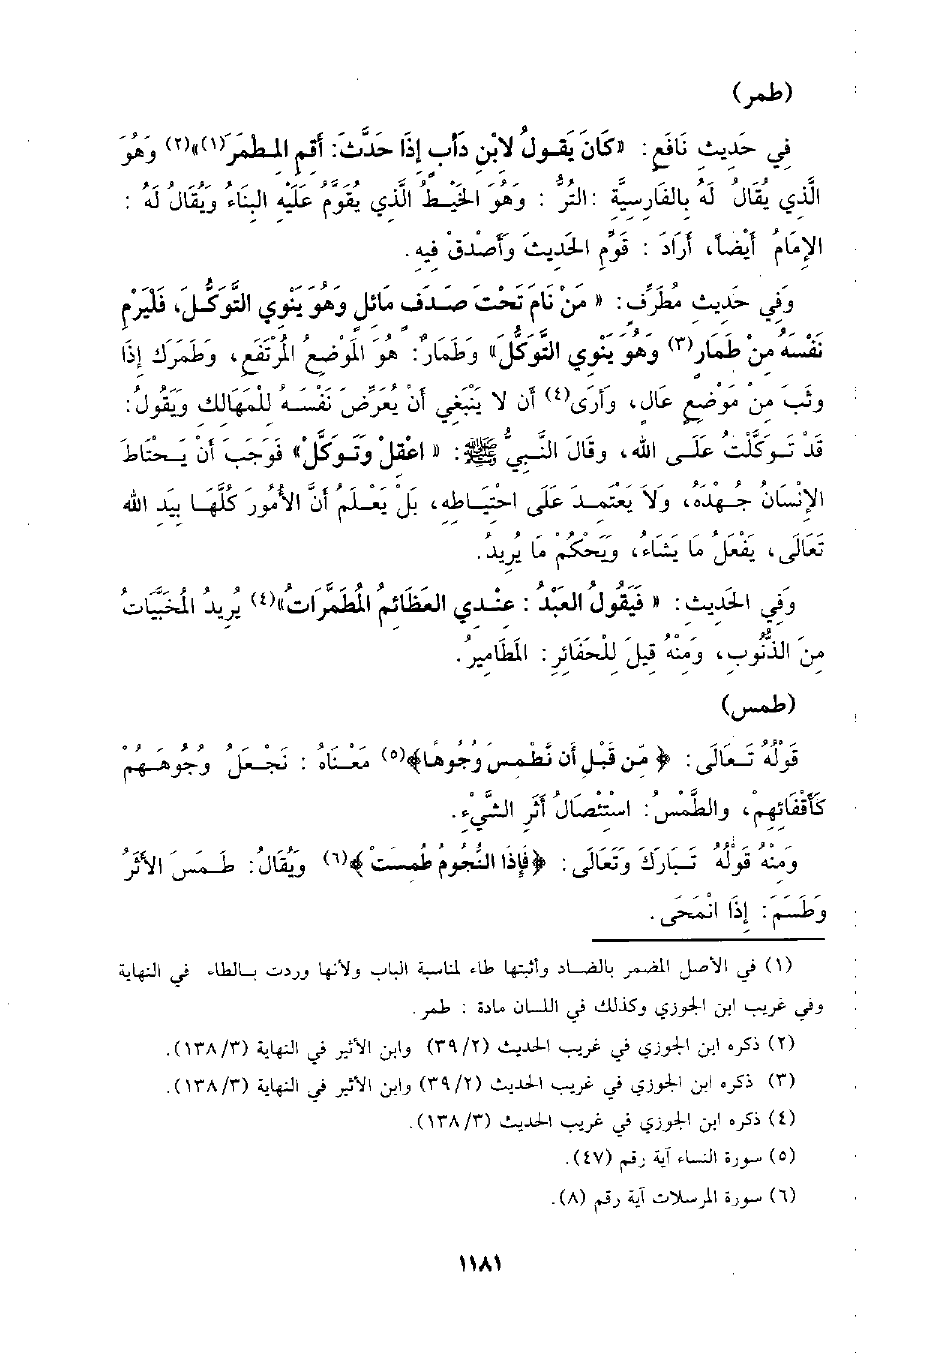 (طمر)
في حَديثِ نَافَعٍ: «كَانَ يَقولُ لابْنِ دَأبٍ إذَا حَدَّثَ: أقم المِطمَرَ(١)»(٢) وَهُوَ
الَّذي يُقَالُ لَهُ بالفَارسيَّة: التُّرُّ: وَهُوَ الخَيْطُ الَّذي يُقَوَّمُ عَلَيْهِ البنَاءُ وَيُقَالُ لَهُ:
الإمَامُ أيْضاً، أرَادَ: قَوِّمِ الحَديثَ وَأصْدقْ فيهِ.
وَفي حَديثِ مُطَرِّف: «مَنْ نَامَ تَحْتَ صَدَف مَائلٍ وَهُوَ يَنْوي التَّوَكُّلَ، فَلْيَرْمِ
نَفْسَهُ مِنْ طَمَارِ(٣) وَهُوَ يَنْوي التَّوكُّلَ» وَطَمَارٌ: هُوَ المَوْضعُ المُرْتَفعُ، وَطَمَرَكَ إذَا
وثَبَ مِنْ مَوْضعٍ عَالٍ، وَأرَى(٤) أن لا يَنْبَغي أنْ يُعَرِّضَ نَفْسَهُ للمَهَالكِ وَيَقُولُ:
قَدْ تَوكَّلْتُ عَلَى اللهِ، وقَالَ النَّبيُّ ﷺ: «اعْقلْ وَتَوكَّلْ» فَوَجَبَ أنْ يَحْتَاطَ
الإنْسَانُ جُهْدَهُ، ولاَ يَعْتَمدَ عَلَى احْتيَاطهِ، بَلْ يَعْلَمُ أنَّ الأمُورَ كُلَّهَا بيَدِ الله
تَعَالَى، يَفْعَلُ مَا يَشَاءُ، وَيَحْكُمُ مَا يُريدُ.
وَفي الحَديثِ: «فَيَقُولُ العَبْدُ: عنْدي العَظَائمُ المُطَمَّرَاتُ»(٤) يُريدُ المُخَبَّيَاتُ
مِنَ الذُّنُوبِ، وَمنْهُ قيلَ للْحَفَائرِ: المَطَاميرُ.
(طمس)
قَوْلُهُ تَعَالَى: ﴿مِّن قَبْلِ أن نَّطْمِسَ وُجُوهًا﴾(٥) مَعْنَاهُ: نَجْعَلُ وُجُوهَهُمْ
كَأَقْفَائهِمْ، والطَّمْسُ: اسْتئْصَالُ أثَرِ الشَّيْءِ.
وَمنْهُ قَوْلُهُ تَبَارَكَ وَتَعَالَى: ﴿فَإذَا النُّجُومُ طُمسَتْ﴾(٦) وَيُقَالُ: طَمَسَ الأثَرُ
وَطَسَمَ: إذَا انْمَحَى.
(١) في الأصل المضمر بالضاد وأثبتها طاء لمناسبة الباب ولأنها وردت بالطاء في النهاية
وفي غريب ابن الجوزي وكذلك في اللسان مادة: طمر.
(٢) ذكره ابن الجوزي في غريب الحديث (٣٩/٢) وابن الأثير في النهاية (١٣٨/٣).
(٣) ذكره ابن الجوزي في غريب الحديث (٣٩/٢) وابن الأثير في النهاية (١٣٨/٣).
(٤) ذكره ابن الجوزي في غريب الحديث (١٣٨/٣).
(٥) سورة النساء آية رقم (٤٧).
(٦) سورة المرسلات آية رقم (٨).
١١٨١